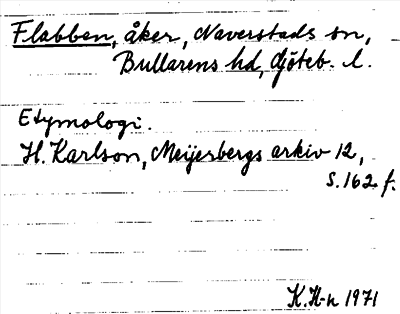 Flabben, åker, Naverstads sn,
Bullarens hd, Göteb. l.
Etymologi.
H. Karlson, Meijerbergs arkiv 12,
S. 162 f.
K. H-n 1971